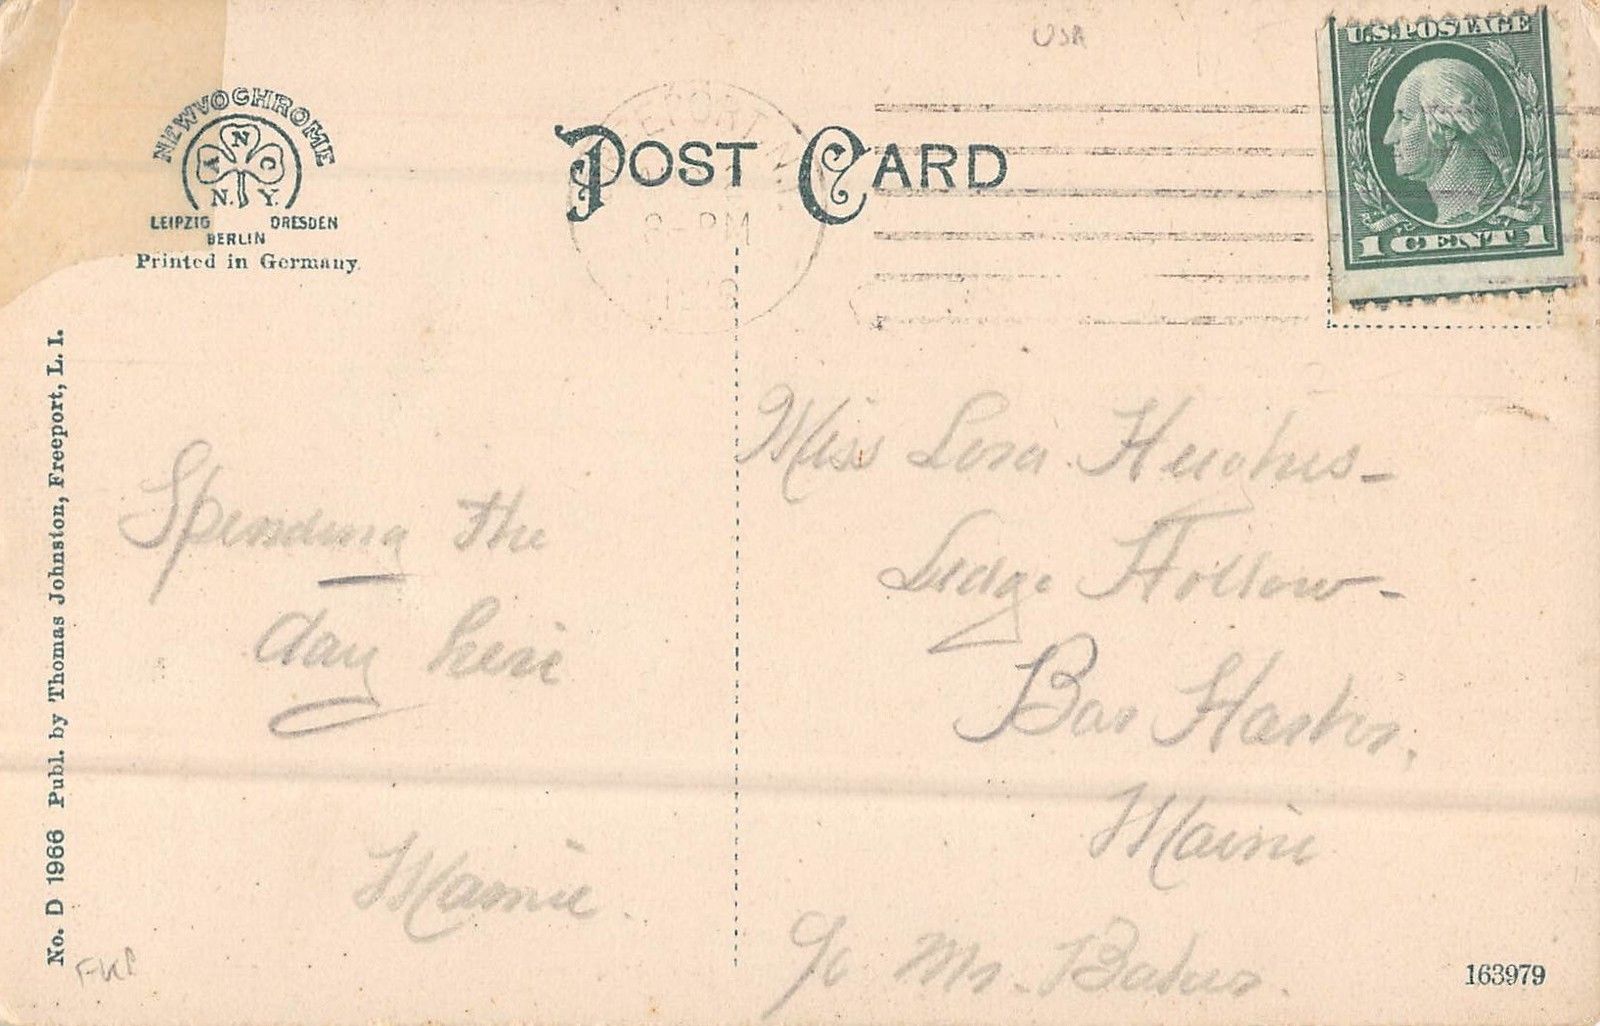 USA
U.S. POSTAGE
1 CENT 1
NEWVOCHROME
A N C
N. Y.
LEIPZIG DRESDEN
BERLIN
Printed in Germany.
POST CARD
8-PM
No. D 1966 Publ. by Thomas Johnston, Freeport, L. I.
Spending the
day here
Mamie.
Miss Lora Hughes-
Ledge Hollow-
Bar Harbor,
Maine
c/o Mr.
163979